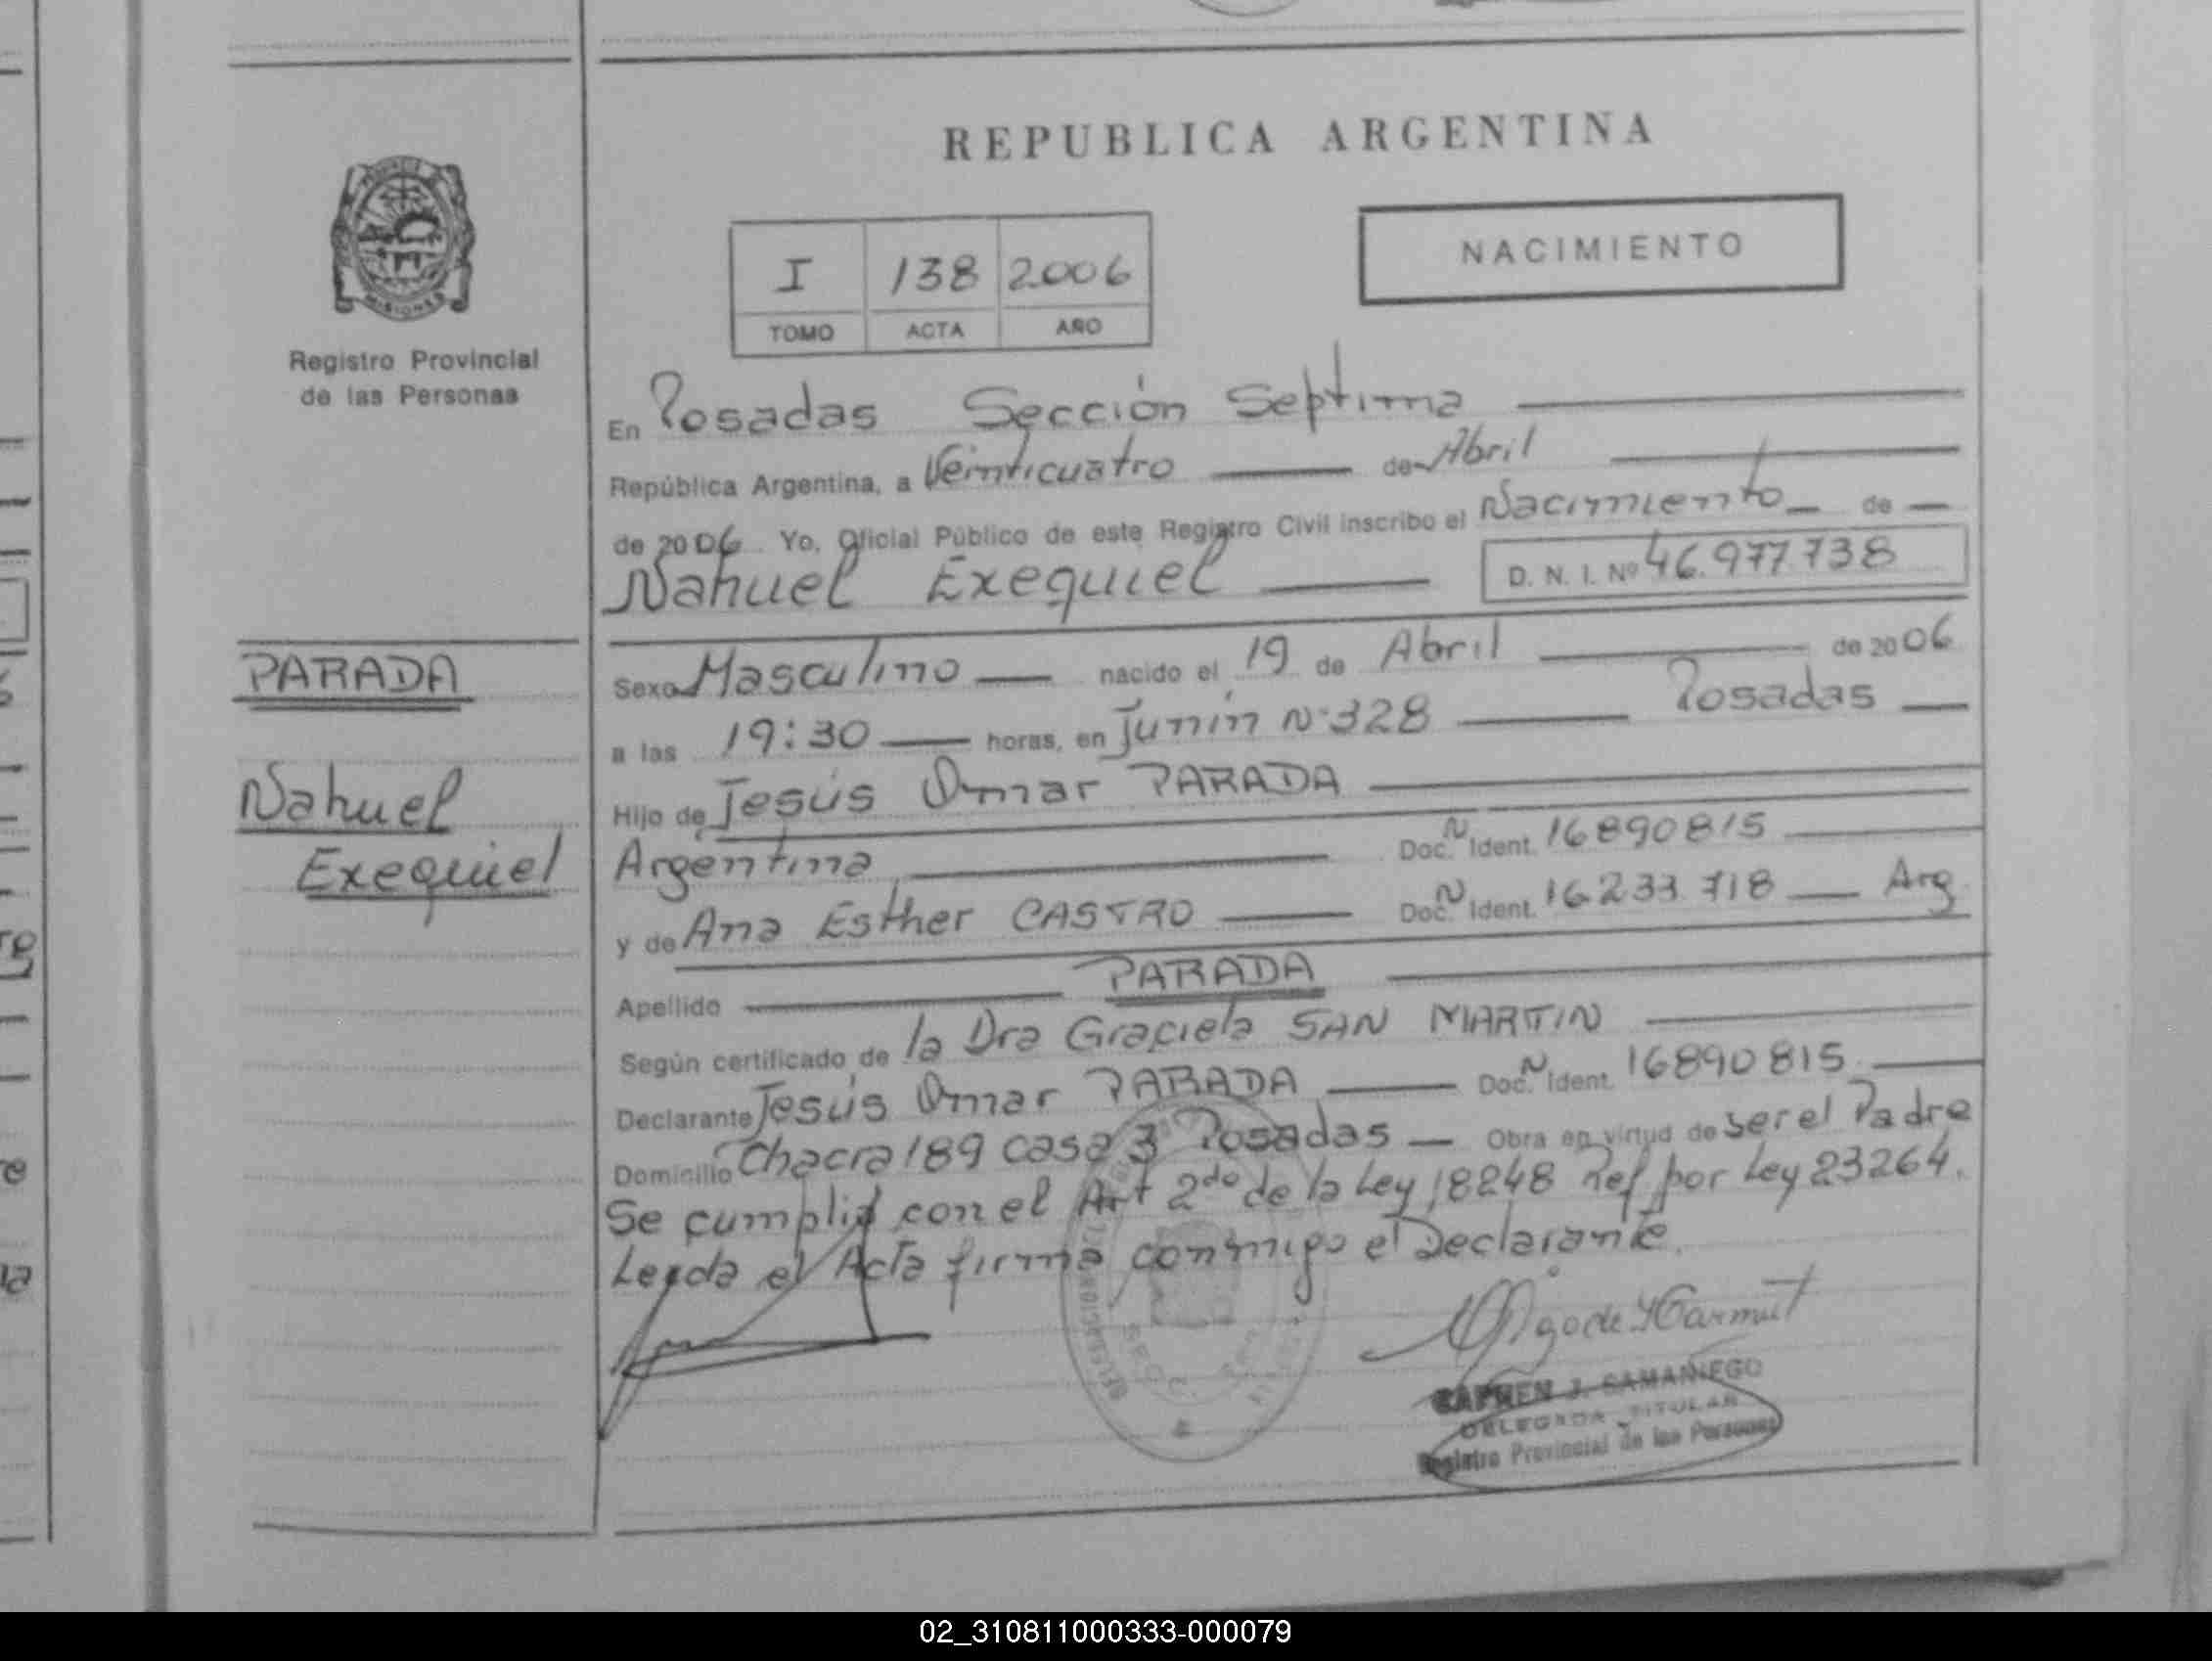 REPUBLICA ARGENTINA
NACIMIENTO
I 138 2006
TOMO ACTA AÑO
MISIONES
Registro Provincial
de las Personas
En Posadas Sección Septima
República Argentina, a Veinticuatro de Abril
de 2006. Yo, Oficial Público de este Registro Civil inscribo el Nacimiento de
Nahuel Exequiel D. N. I. Nº 46.977.738
PARADA
Nahuel
Exequiel
Sexo Masculino nacido el 19 de Abril de 2006
a las 19:30 horas, en Junín Nº 328 Posadas
Hijo de Jesús Omar PARADA
Argentina Doc. N Ident. 16890815
y de Ana Esther CASTRO Doc. N Ident. 16.233.718 Arg
Apellido PARADA
Según certificado de la Dra Graciela SAN MARTIN
Declarante Jesús Omar PARADA Doc. N Ident. 16890815
Domicilio Chacra 189 casa 3 Posadas Obra en virtud de ser el Padre
Se cumplió con el Art 2do de la Ley 18248 Ref por Ley 23264.
Leyda el Acta firma conmigo el Declarante.
CARMEN J. SAMANIEGO
DELEGADA TITULAR
Registro Provincial de las Personas
02_310811000333-000079